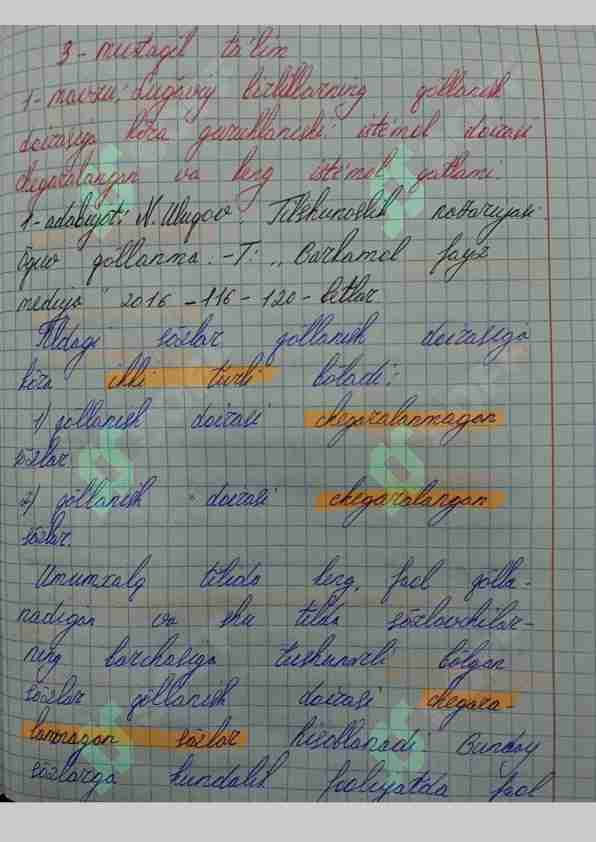 3 - mustaqil ta'lim
1-mavzu: Lug'aviy birliklarning qo'llanish
doirasiga ko'ra guruhlanishi: iste'mol doirasi
chegaralangan va keng iste'mol qatlami.
1-adabiyot: N. Uluqov. Tilshunoslik nazariyasi.
O'quv qo'llanma. -T: „Barkamol fayz
mediya" 2016 - 116 - 120 - betlar.
Tildagi so'zlar qo'llanish doirasiga
ko'ra ikki turli bo'ladi:
1) qo'llanish doirasi chegaralanmagan
so'zlar.
2) qo'llanish doirasi chegaralangan
so'zlar.
Umumxalq tilida keng, faol qo'lla-
nadigan va shu tilda so'zlovchilar-
ning barchasiga tushunarli bo'lgan
so'zlar qo'llanish doirasi chegara-
lanmagan so'zlar hisoblanadi. Bunday
so'zlarga kundalik faoliyatda faol